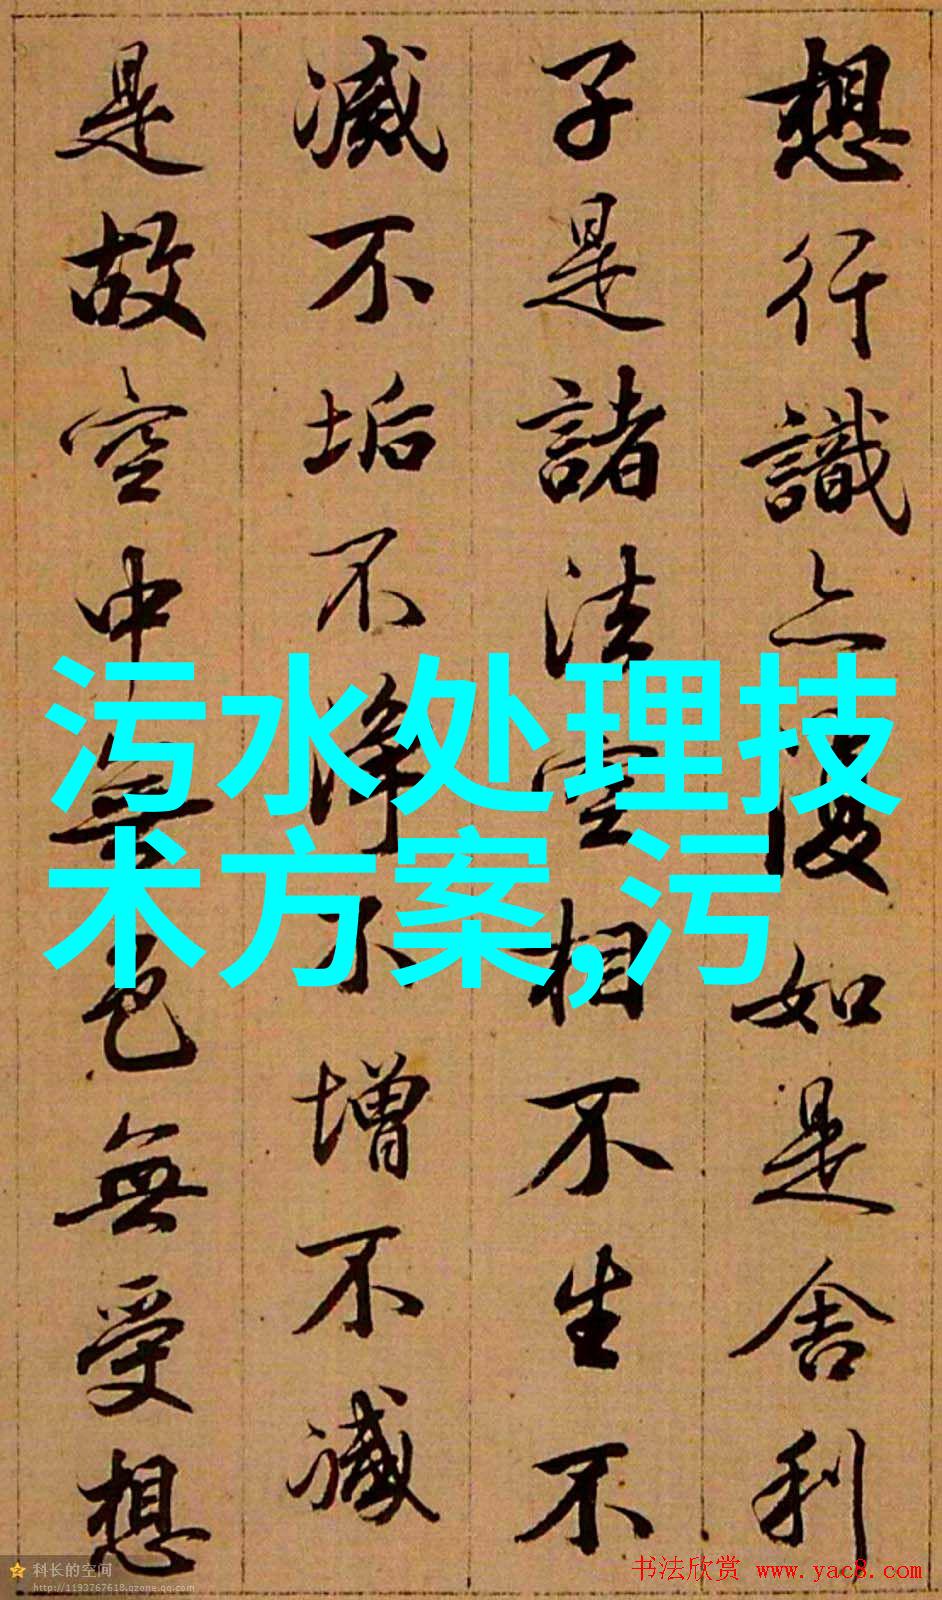 想行識亦復如是舍利
子是諸法空相不生不
滅不垢不淨不增不減
是故空中無色無受想
污水处理技
术方案,污
科长的空间
http://1193767618.qzone.qq.com
书法欣赏 www.yac8.com